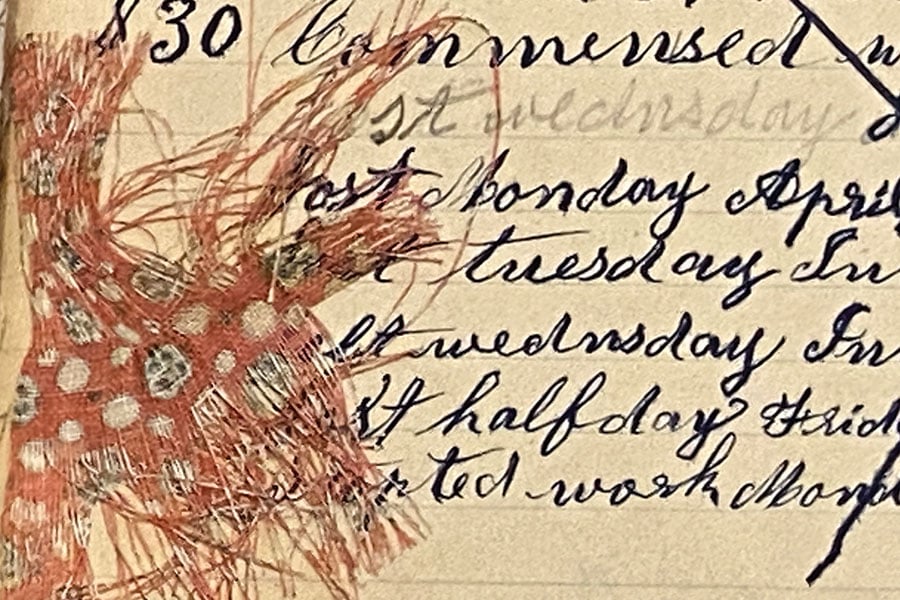 $30 Commensed
wednsday
Lost Monday April
tuesday In
wednsday In
halfday Frid
work Mond